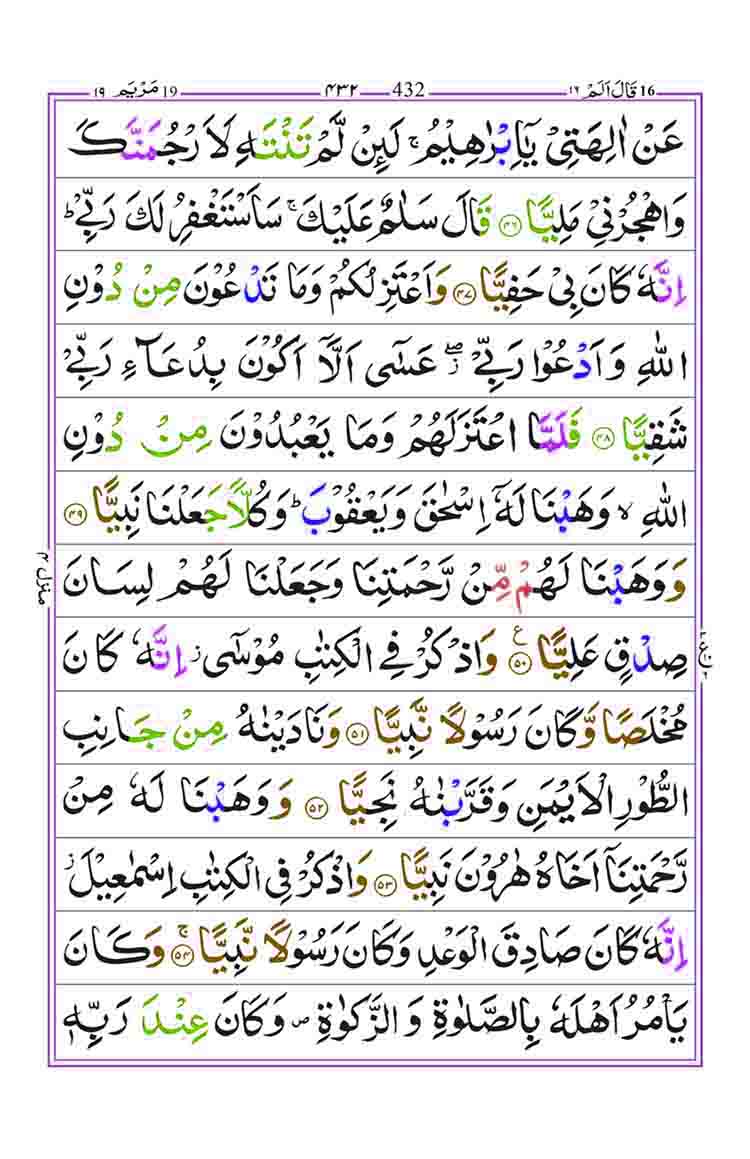 ١٩ مَرْيَم 19 ٤٣٢ 432 ١٦ قَالَ اَلَمْ 16
عَنْ اٰلِهَتِیْ یٰۤاِبْرٰهِیْمُ ۚ لَىِٕنْ لَّمْ تَنْتَهِ لَاَرْجُمَنَّكَ
وَاهْجُرْنِیْ مَلِیًّا ﴿۴۶﴾ قَالَ سَلٰمٌ عَلَیْكَ ۚ سَاَسْتَغْفِرُ لَكَ رَبِّیْ ؕ
اِنَّهٗ كَانَ بِیْ حَفِیًّا ﴿۴۷﴾ وَاَعْتَزِلُكُمْ وَمَا تَدْعُوْنَ مِنْ دُوْنِ
اللّٰهِ وَاَدْعُوْا رَبِّیْ ۖؗ عَسٰۤی اَلَّاۤ اَكُوْنَ بِدُعَآءِ رَبِّیْ
شَقِیًّا ﴿۴۸﴾ فَلَمَّا اعْتَزَلَهُمْ وَمَا یَعْبُدُوْنَ مِنْ دُوْنِ
اللّٰهِ ۙ وَهَبْنَا لَهٗۤ اِسْحٰقَ وَیَعْقُوْبَ ؕ وَكُلًّا جَعَلْنَا نَبِیًّا ﴿۴۹﴾
وَوَهَبْنَا لَهُمْ مِّنْ رَّحْمَتِنَا وَجَعَلْنَا لَهُمْ لِسَانَ
صِدْقٍ عَلِیًّا ﴿۵۰﴾ ع وَاذْكُرْ فِی الْكِتٰبِ مُوْسٰۤی ؗ اِنَّهٗ كَانَ
مُخْلَصًا وَّكَانَ رَسُوْلًا نَّبِیًّا ﴿۵۱﴾ وَنَادَیْنٰهُ مِنْ جَانِبِ
الطُّوْرِ الْاَیْمَنِ وَقَرَّبْنٰهُ نَجِیًّا ﴿۵۲﴾ وَوَهَبْنَا لَهٗ مِنْ
رَّحْمَتِنَاۤ اَخَاهُ هٰرُوْنَ نَبِیًّا ﴿۵۳﴾ وَاذْكُرْ فِی الْكِتٰبِ اِسْمٰعِیْلَ ؗ
اِنَّهٗ كَانَ صَادِقَ الْوَعْدِ وَكَانَ رَسُوْلًا نَّبِیًّا ﴿۵۴﴾ ۚ وَكَانَ
یَاْمُرُ اَهْلَهٗ بِالصَّلٰوةِ وَالزَّكٰوةِ ۪ وَكَانَ عِنْدَ رَبِّهٖ
منزل ۴